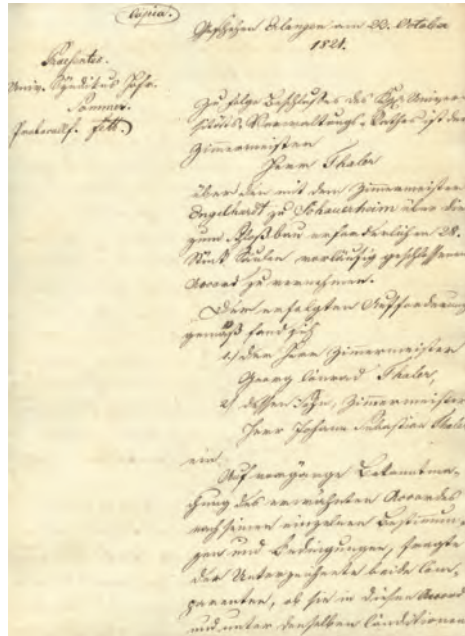 Copia.
Geschehen Erlangen am 23. October
1821.
Praesentes.
Univ. Syndikus Hofr.
Protocollf.
Zu folge Beschlusses des Kgl. Univer-
sitäts-Verwaltungs-Rathes ist der
Zimmermeister
Herr Thaler
über den mit dem Zimmermeister
Engelhardt zu Schauerheim über die
zum Schloßbau erforderlichen 28.
Stück Säulen vorläufig geschlossenen
Accord zu vernehmen.
Der erfolgten Aufforderung
gemäß fand sich
1) der Herr Zimmermeister
Georg Conrad Thaler,
2) dessen Sohn, Zimmermeister
Herr Johann Sebastian Thaler
ein.
Auf vorgängige Bekanntma-
chung des erwähnten Accordes
nach seinen einzelnen Bestimmun-
gen und Bedingungen, fragte
der Unterzeichnete beide Com-
parenten, ob sie in diesen Accord
und unter denselben Conditionen